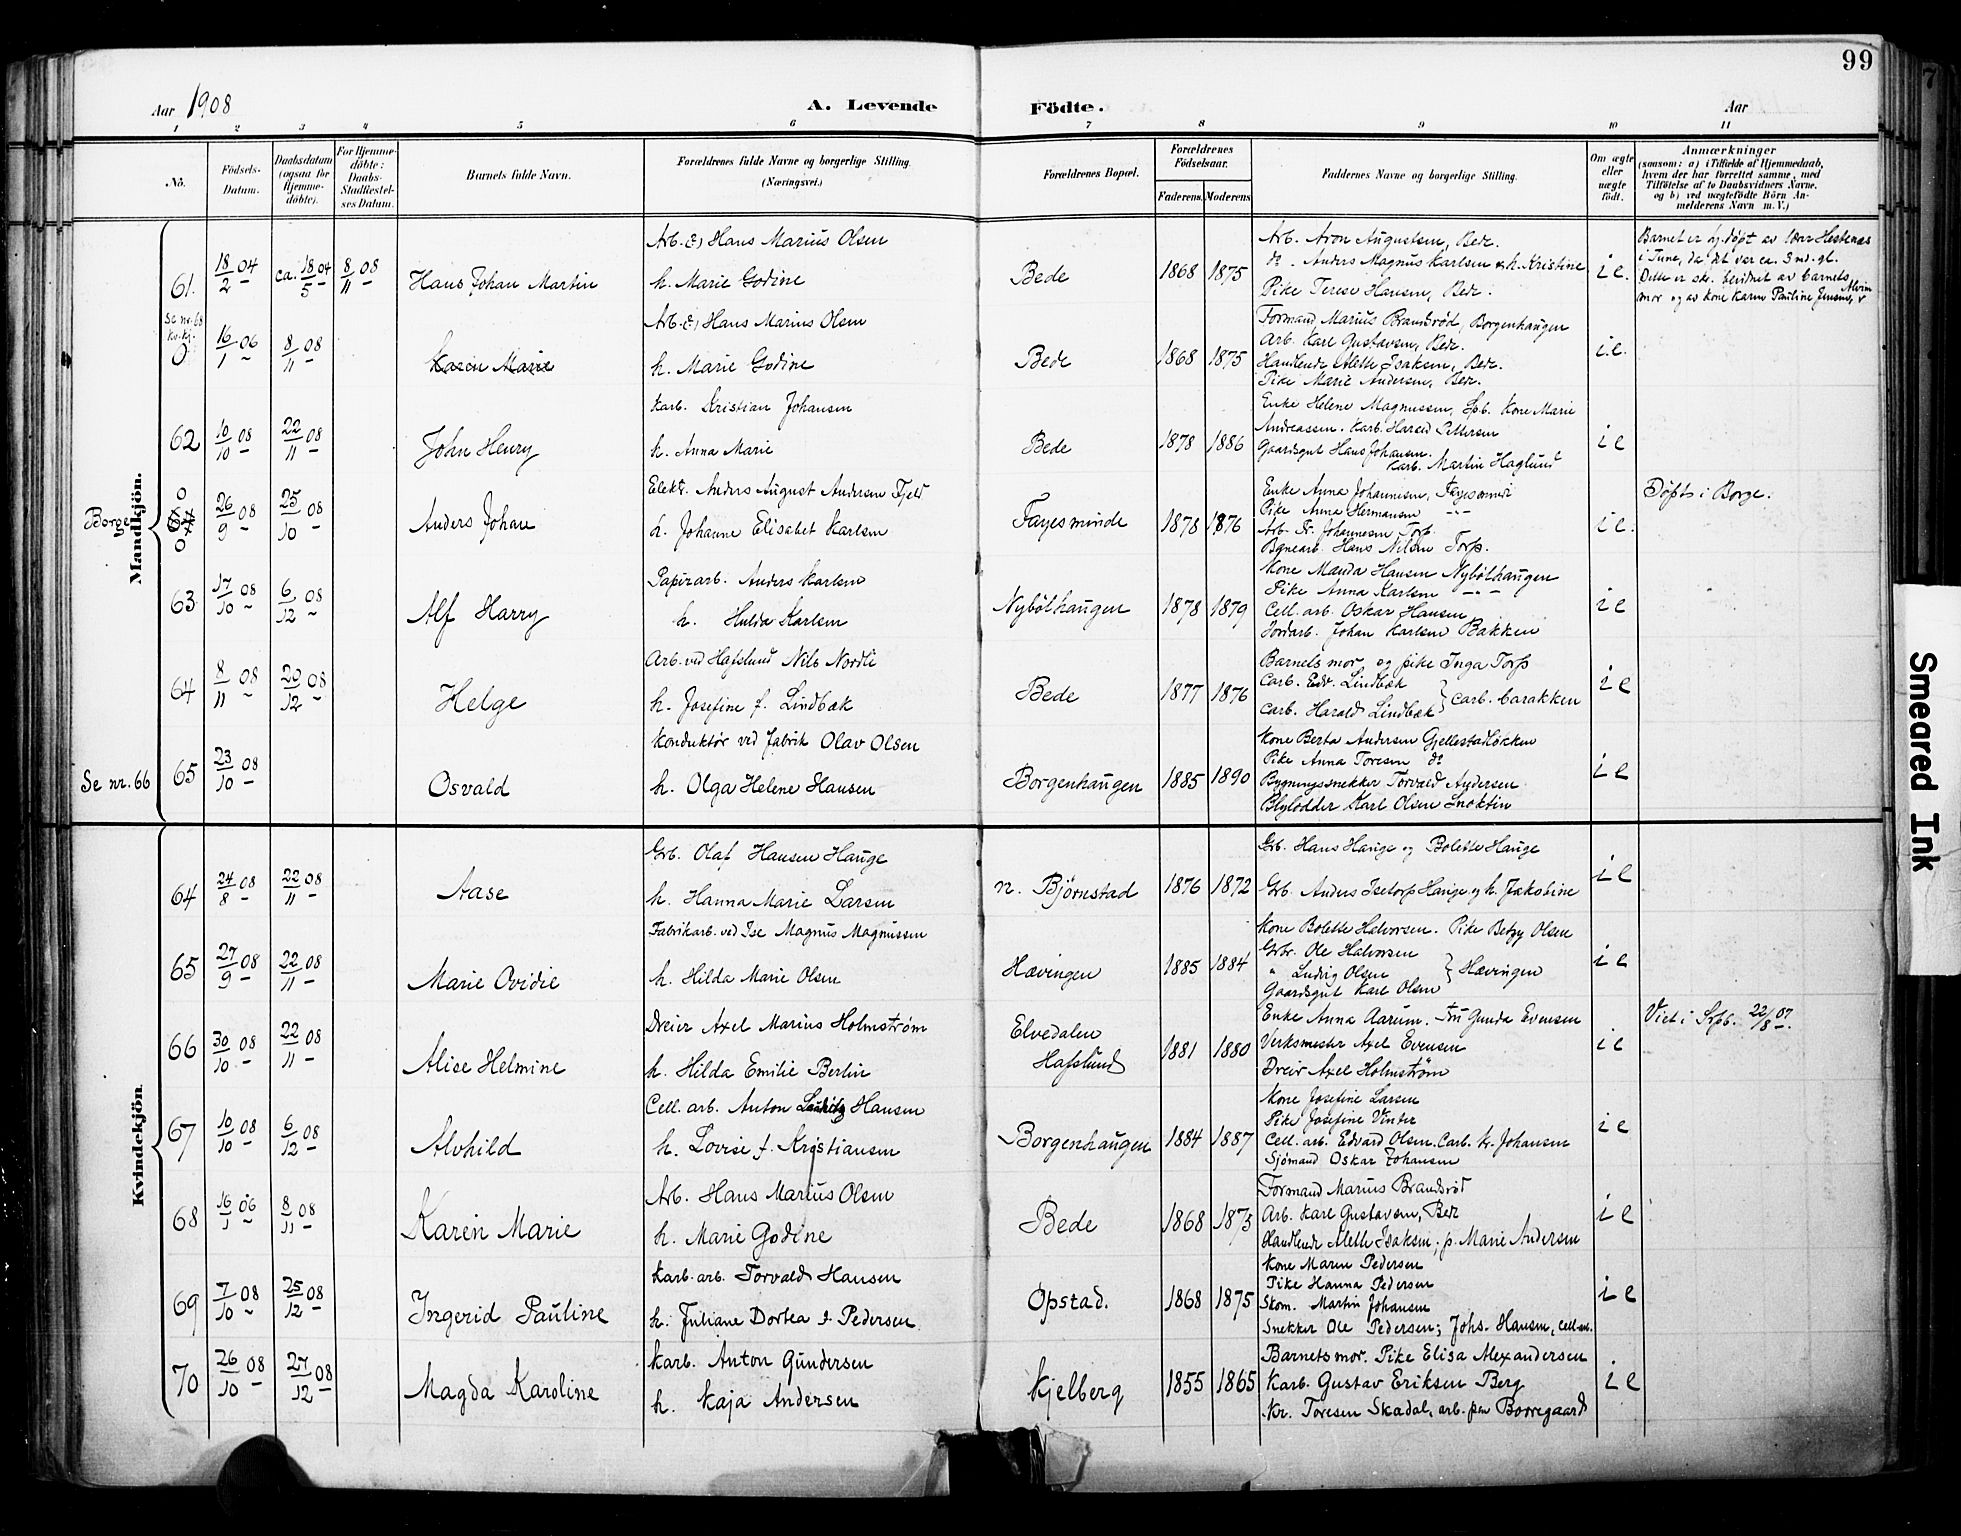 99
Aar 1908
A. Levende Födte.
Aar
1 2 3 4 5 6 7 8 9 10 11
No.
Födsels-Datum.
Daabsdatum (ogsaa for Hjemme-döbte).
For Hjemme-döbte: Daabs-Stadfæstel-ses Datum.
Barnets fulde Navn.
Forældrenes fulde Navne og borgerlige Stilling.
(Næringsvei.)
Forældrenes Bopæl.
Forældrenes Födselsaar.
Faderens. Moderens
Faddernes Navne og borgerlige Stilling.
Om ægte eller uægte født.
Anmærkninger
(saasom: a) i Tilfælde af Hjemmedaab,
hvem der har forrettet samme, med
Tilföielse af to Daabsvidners Navne,
og b) ved uægtefödte Börn An-
melderens Navn m. V.)
Mandkjön.
61. 18/2 04 ca. 18/5 04 8/11 08 Hans Johan Martin
Arb. Hans Marius Olsen
h. Marie Godine
Bede 1868 1875
Arb. Aron Augustsen, Bede.
do. Anders Magnus Karlsen & h. Kristine
Pike Terese Hansen, Bede.
i e.
Barnet er hj.døpt av
i June, da det var ca. 3 md. gl.
Dette er ske. bevidnet av barnets
mor og av kone Karen Pauline Jensen,
Se nr. 68 kv.kj.
0 16/1 06 8/11 08 Karen Marie
Arb. Hans Marius Olsen
h. Marie Godine
Bede 1868 1875
Formand Marius Brandsrød, Borgenhaugen
Arb. Karl Gustavsen, Bede.
Handlende Mette Isaksen, Bede.
Pike Marie Andersen, Bede.
i.e.
62 10/10 08 22/11 08 John Henry
Karb. Kristian Johansen
h. Anna Marie
Bede 1878 1886
Enke Helene Magnussen, Spb. Kone Marie
Andreassen. Karb. Harald Pettersen
Gaardsgut Hans Johansen.
Karb. Martin Haglund
i e
Borge 0 0 26/9 08 25/10 08 Anders Johan
Elektr. Anders August Andersen Fjeld
h. Johanne Elisabet Karlsen
Fayesminde 1878 1876
Enke Anna Johannesen, Fayesminde
Pike Anna Hermansen -"-
Arb. Kr. Johannesen Torp.
Banearb. Hans Nilsen Torp.
i e.
Døpt i Borge.
63 17/10 08 6/12 08 Alf Harry
Papirarb. Anders Karlsen
h. Hulda Karlsen
Nybølhaugen 1878 1879
Kone Manda Hansen Nybølhaugen
Pike Anna Karlsen -"-
Cell. arb. Oskar Hansen
Jordarb. Johan Karlsen Bakken
i e
64 8/11 08 20/12 08 Helge
Arb. ved Hafslund Nils Nordli
h. Josefine f. Lindbæk
Bede 1877 1876
Barnets mor og pike Inga Torp
Carb. Edv. Lindbæk
Carb. Harald Lindbæk } Carb. barakken
i e
Se nr. 66 65 23/10 08 Osvald
Konduktør ved fabrik Olav Olsen
h. Olga Helene Hansen
Borgenhaugen 1885 1890
Kone Berta Andersen Gjellestadløkken
Pike Anna Toresen do
Bygningssnekker Torvald Andersen
Blylodder Karl Olsen
i e
Kvindekjön
64 24/8 08 22/11 08 Aase
Grb. Olaf Hansen Hauge
h. Hanna Marie Larsen
n. Bjørnstad 1876 1872
Grb. Hans Hauge og Bolette Hauge
Grb. Anders Isetorp Hauge og h. Jakobine
i e
65 27/9 08 22/11 08 Marie Ovidie
Fabrikarb. ved Ise Magnus Magnussen
h. Hilda Marie Olsen
Hævingen 1885 1884
Kone Bolette Halvorsen. Pike Betzy Olsen
Grbr. Ole Halvorsen
" Ludvig Olsen } Hævingen
Gaardsgut Karl Olsen
i e
66 30/10 08 22/11 08 Alice Helmine
Dreier Axel Marius Holmstrøm
h. Hilda Emilie Berlin
Elvedalen Hafslund 1881 1880
Enke Anna Aarum. Fru Gunda Evensen
Verksmester Axel Evensen
Dreier Axel Holmstrøm
i e
Viet i Srpb. 22/8 07.
67 10/10 08 6/12 08 Alvhild
Cell. arb. Anton Lauritz Hansen
h. Lovise f. Kristiansen
Borgenhaugen 1884 1887
Kone Josefine Larsen
Pike Josefine Vinter
Cell. arb. Edvard Olsen. Carb. Kr. Johansen
Sjømand Oskar Johansen
i e
68 16/1 06 8/11 08 Karen Marie
Arb. Hans Marius Olsen
h. Marie Godine
Bede 1868 1875
Formand Marius Brandsrød
Arb. Karl Gustavsen, Bede
Handlende Mette Isaksen, p. Marie Andersen
i e
69 7/10 08 25/12 08 Ingerid Pauline
Karb. arb. Torvald Hansen
h. Juliane Dortea f. Pedersen
Opstad. 1868 1875
Kone Maren Pedersen
Pike Hanna Pedersen
Skom. Martin Johansen
Snekker Ole Pedersen; Johs. Hansen, cell-arb.
i e
70 26/10 08 27/12 08 Magda Karoline
Karb. Anton Gundersen
h. Kaja Andersen
Kjelberg 1855 1865
Barnets mor. Pike Elisa Alexandersen
Karb. Gustav Eriksen Berg
Kr. Toresen Skadal, arb. paa Borregaard
i e
Smeared Ink